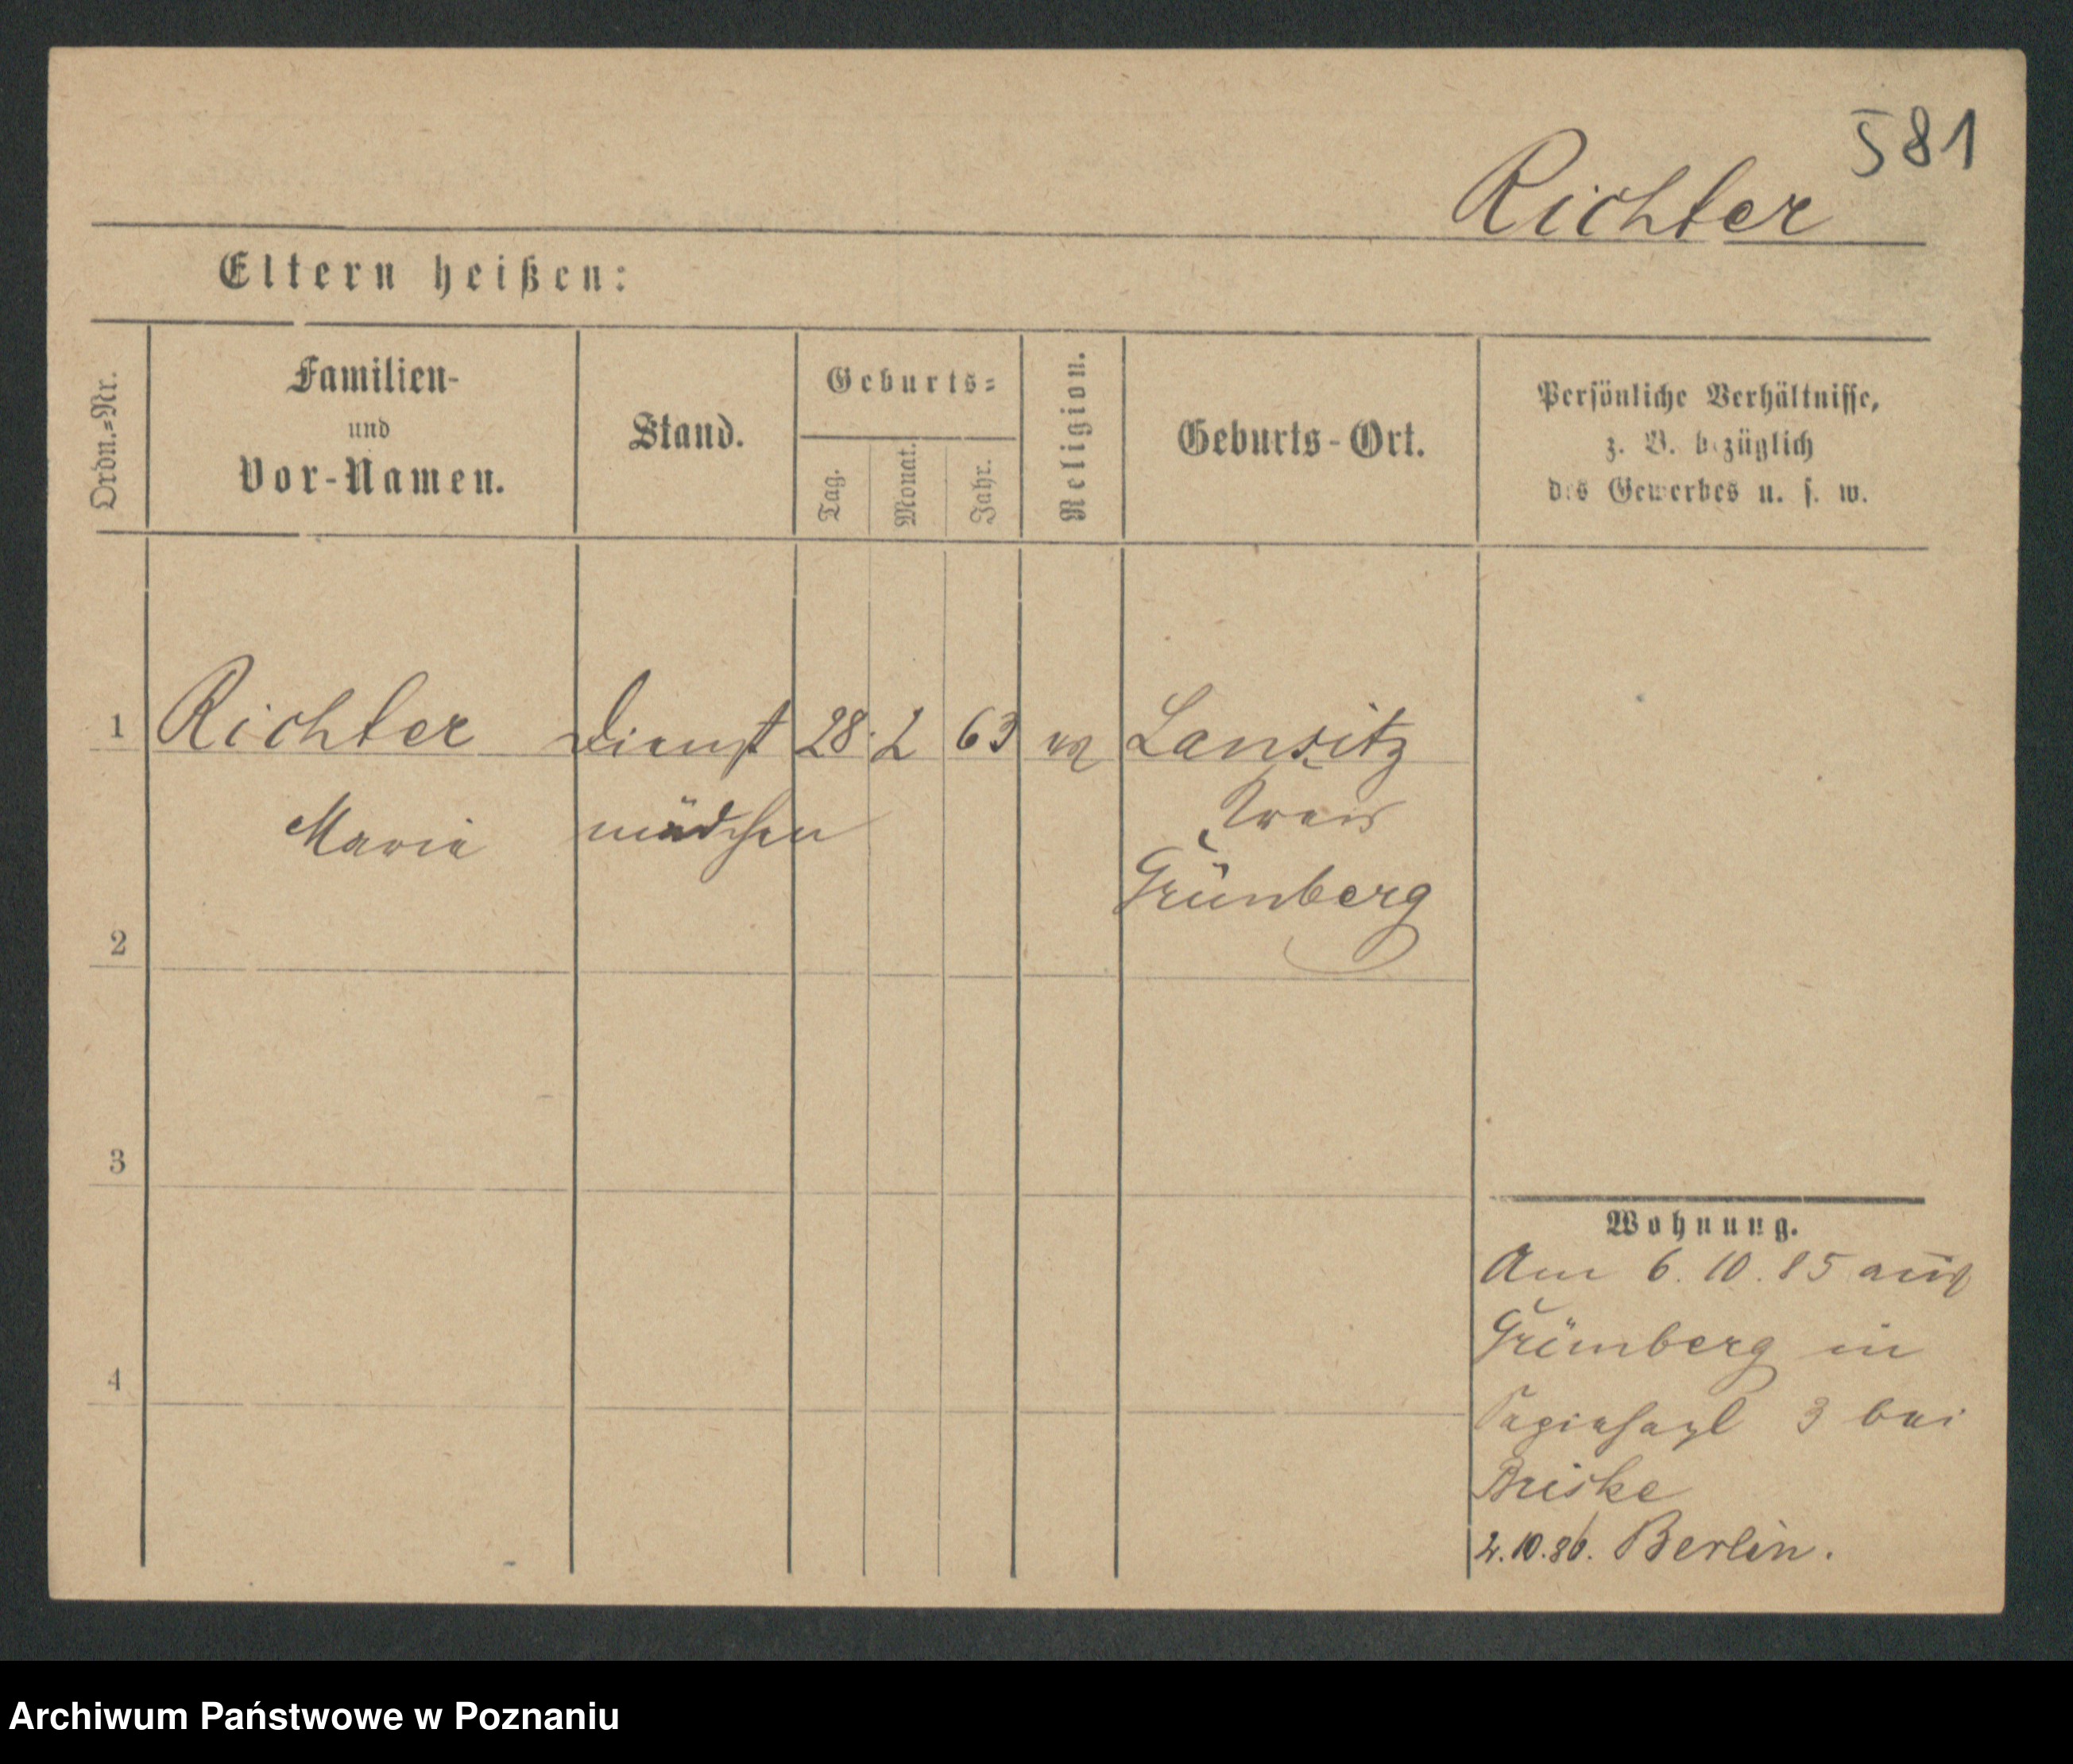 581
Richter
Eltern heißen:
Ordn.=Nr.
Familien-
und
Vor-Namen.
Stand.
Geburts=
Tag.
Monat.
Jahr.
Religion.
Geburts-Ort.
Persönliche Verhältnisse,
z. B. bezüglich
des Gewerbes u. s. w.
1 Richter Dienst 28. 2 63 ev Lansitz
Maria mädchen Kreis
Grünberg
2
3
4
Wohnung.
Am 6. 10. 85 aus
Grünberg in
3 bei
Briske
2. 10. 86. Berlin.
Archiwum Państwowe w Poznaniu